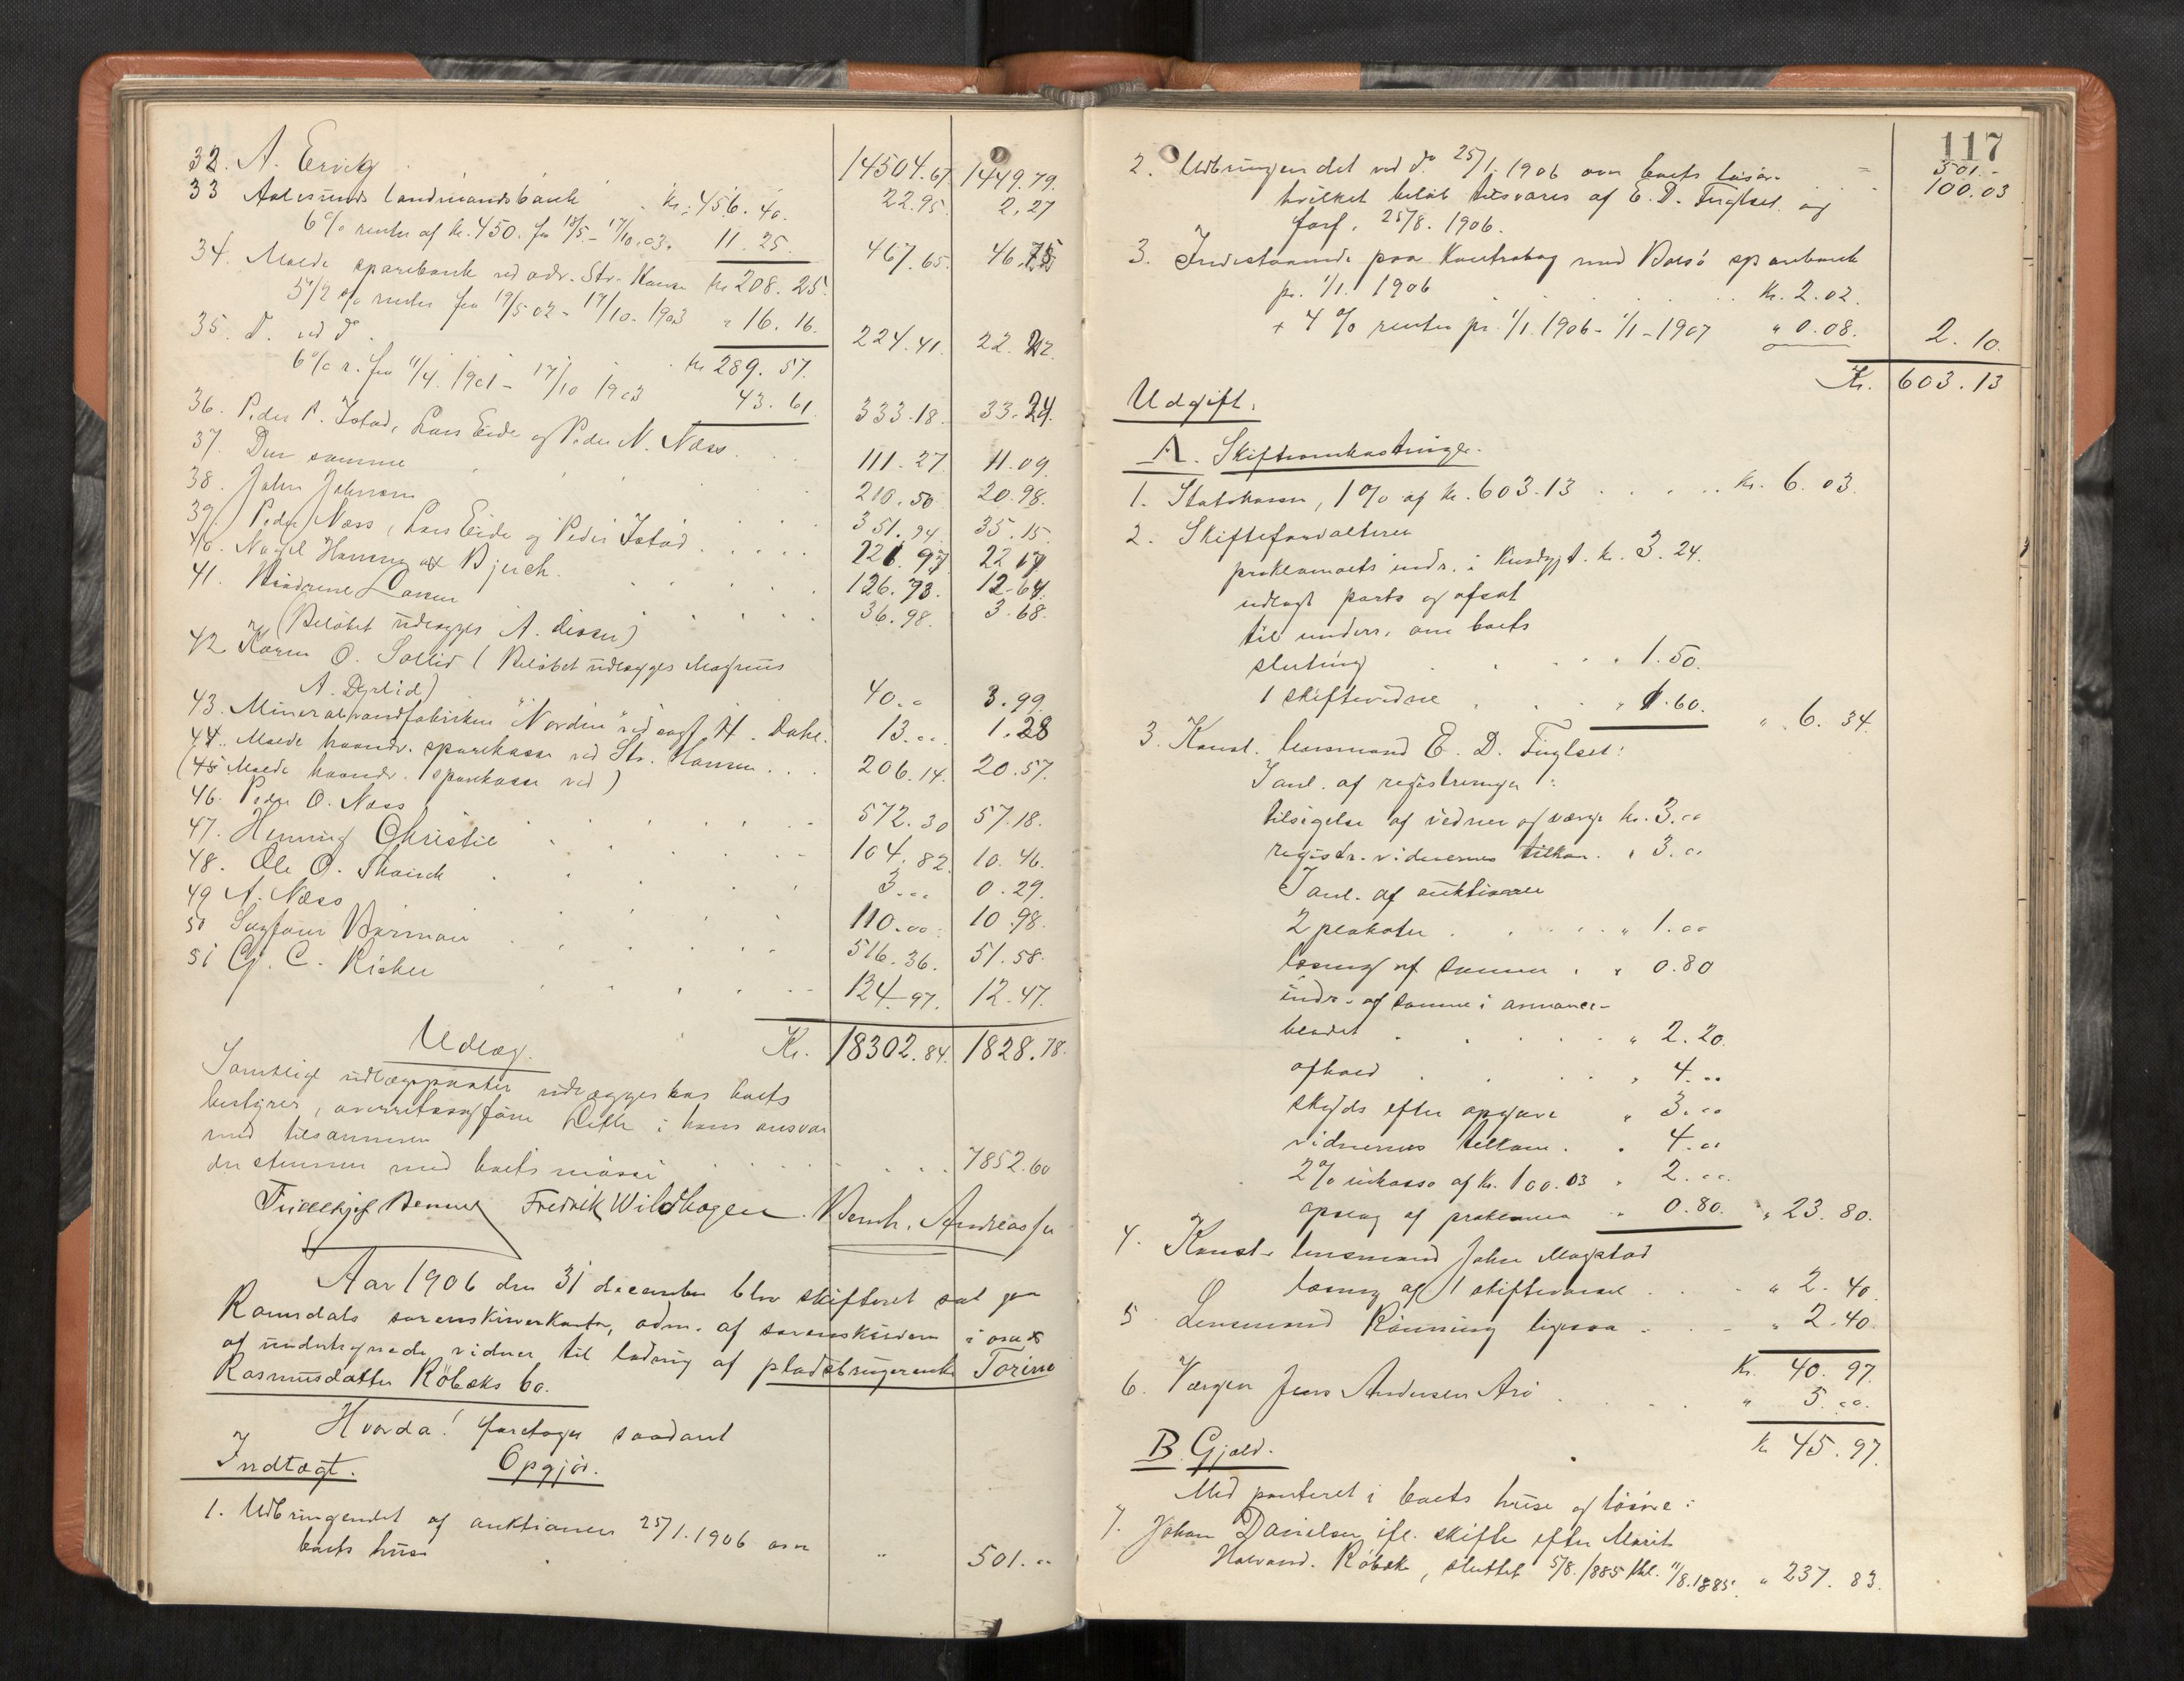 14504.67 1449.79.
32. A. Ervik 22.95. 2.27
33 Aalesunds landmandsbank kr. 456.40.
6% renter af kr. 450. fra 18/5.- 17/10.03. 11.25. 467.65. 46.75
34. Molde sparebank ved adv. Str. Hansen kr 208.25.
5½ % renter fra 19/5 02 - 17/10. 1903 " 16.16. 224.41. 22.42.
35. do. ved do. kr 289.57.
6% r. fra 11/4. 1901 - 17/10 1903 43.61. 333.18. 33.24.
36. Peder P. Istad, Lars Eide og Peder N. Næss 111.27. 11.09.
37. Den samme 210.50 20.98.
38. John Johnsen 351.94. 35.15.
39. Peder Næss, Lars Eide og Peder Istad 221.97. 22.17
40. Nagel Hansen & Bjerch 126.73. 12.64.
41. Brødrene Larsen 36.98. 3.68.
(Beløbet udlægges A. )
42 Karen O. Sollid (Beløbet udlægges Magnus
A. Dyrlid) 40.. 3.99.
43. Mineralvandfabriken "Norden" ved sagf. H. Dahl. 13... 1.28
44. Molde haandv. sparekasse ved Str. Hansen... 206.14. 20.57.
(45 Molde haandv. sparekasse ved)
46. Peder O. Næss 572.30 57.18.
47. Henning Christie 104.82 10.46.
48. Ole O. 3... 0.29.
49 A. Næss 110.00. 10.98.
50 Sagfører 516.36. 51.58.
51 G. C. Ricker 124.97. 12.47.
Kr. 18302.84. 1828.78.
Udlæg.
Samtlige udlægsposter udlægges hos boets
bestyrer, overretssagfører i hans ansvar
med tilsammen 7852.60
der stemmer med boets masse
Fredrik Wildhagen. Bernh. Andreassen
Aar 1906 den 31 december blev skifteret sat paa
Romsdals sorenskriverkontor, adm. af sorenskriveren i overv.
af undertegnede vidner til ladning af pladsbrugerenke Torine
Rasmusdatter Röbæks bo.
Hvorda! foretoges saadant
Opgjør.
Indtægt.
1. Udbringendet af auktionen 25/1. 1906 over
boets huse " 501...
117
501.-
2. Udbringendet ved do 25/1. 1906 over boets løsøre 100.03
hvilket beløb tilsvares af E. D. Fuglset og
forf. 25/8. 1906.
3. Indestaaende paa Kontrabog med Bolsø sparebank
pr. 1/1. 1906 kr. 2.02.
+ 4 % renter pr. 1/1. 1906 - 1/1 - 1907 " 0.08. 2.10.
Kr. 603.13
Udgift.
A. Skifteomkostninger.
1. Statskassen, 1 % af kr. 603.13 kr. 6.03.
2. Skifteforvalteren
proklamaets indr. i Kundgjt. kr. 3.24.
udlagt porto og afsat
til underr. om boets
slutning " 1.50.
1 skiftevidne " 1.60. " 6.34.
3. Konst. lensmand E. D. Fuglset:
I anl. af registreringen:
tilsigelse af vidner og værge kr. 3...
registr. vidnernes tilkom. " 3...
I anl. af auktionen
2 plakater " 1...
læsning af samme " 0.80
indr. af samme i annonce-
bladet " 2.20.
afhold " 4...
skyds efter opgave " 3...
vidnernes tilkom. " 4...
2% inkasso af Kr. 100.03 " 2...
opslag af proklama " 0.80. " 23.80.
4. Konst. lensmand John Magstad
læsning af 1 skiftevarsel " 2.40.
5 Lensmand Rönning ligesaa " 2.40
Kr. 40.97.
6. Værgen Jens Andersen Arö " 5.00.
kr 45.97.
B. Gjæld.
Med panteret i boets huse og løsøre:
7. Johan Danielsen ifl. skifte efter Marit
Halvard. Röbæk, sluttet 5/8. 1885 thl. 11/8. 1885. " 237.83.